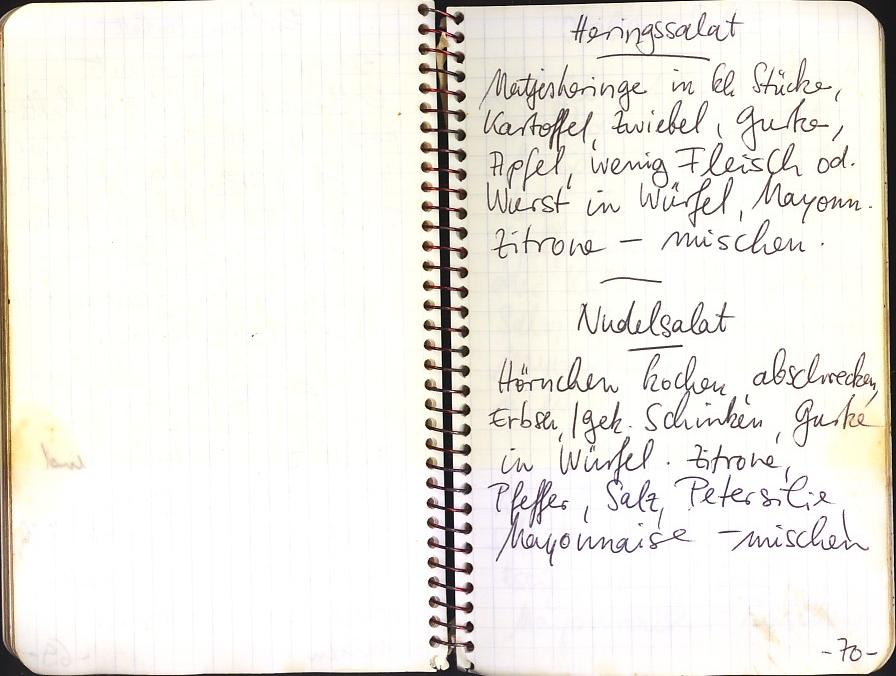 Heringssalat
Matjesheringe in kl. Stücke,
Kartoffel, Zwiebel, Gurke,
Apfel, wenig Fleisch od.
Wurst in Würfel, Mayonn.
Zitrone – mischen.
Nudelsalat
Hörnchen kochen, abschrecken,
Erbsen, gek. Schinken, Gurke
in Würfel. Zitrone,
Pfeffer, Salz, Petersilie,
Mayonnaise – mischen
-70-